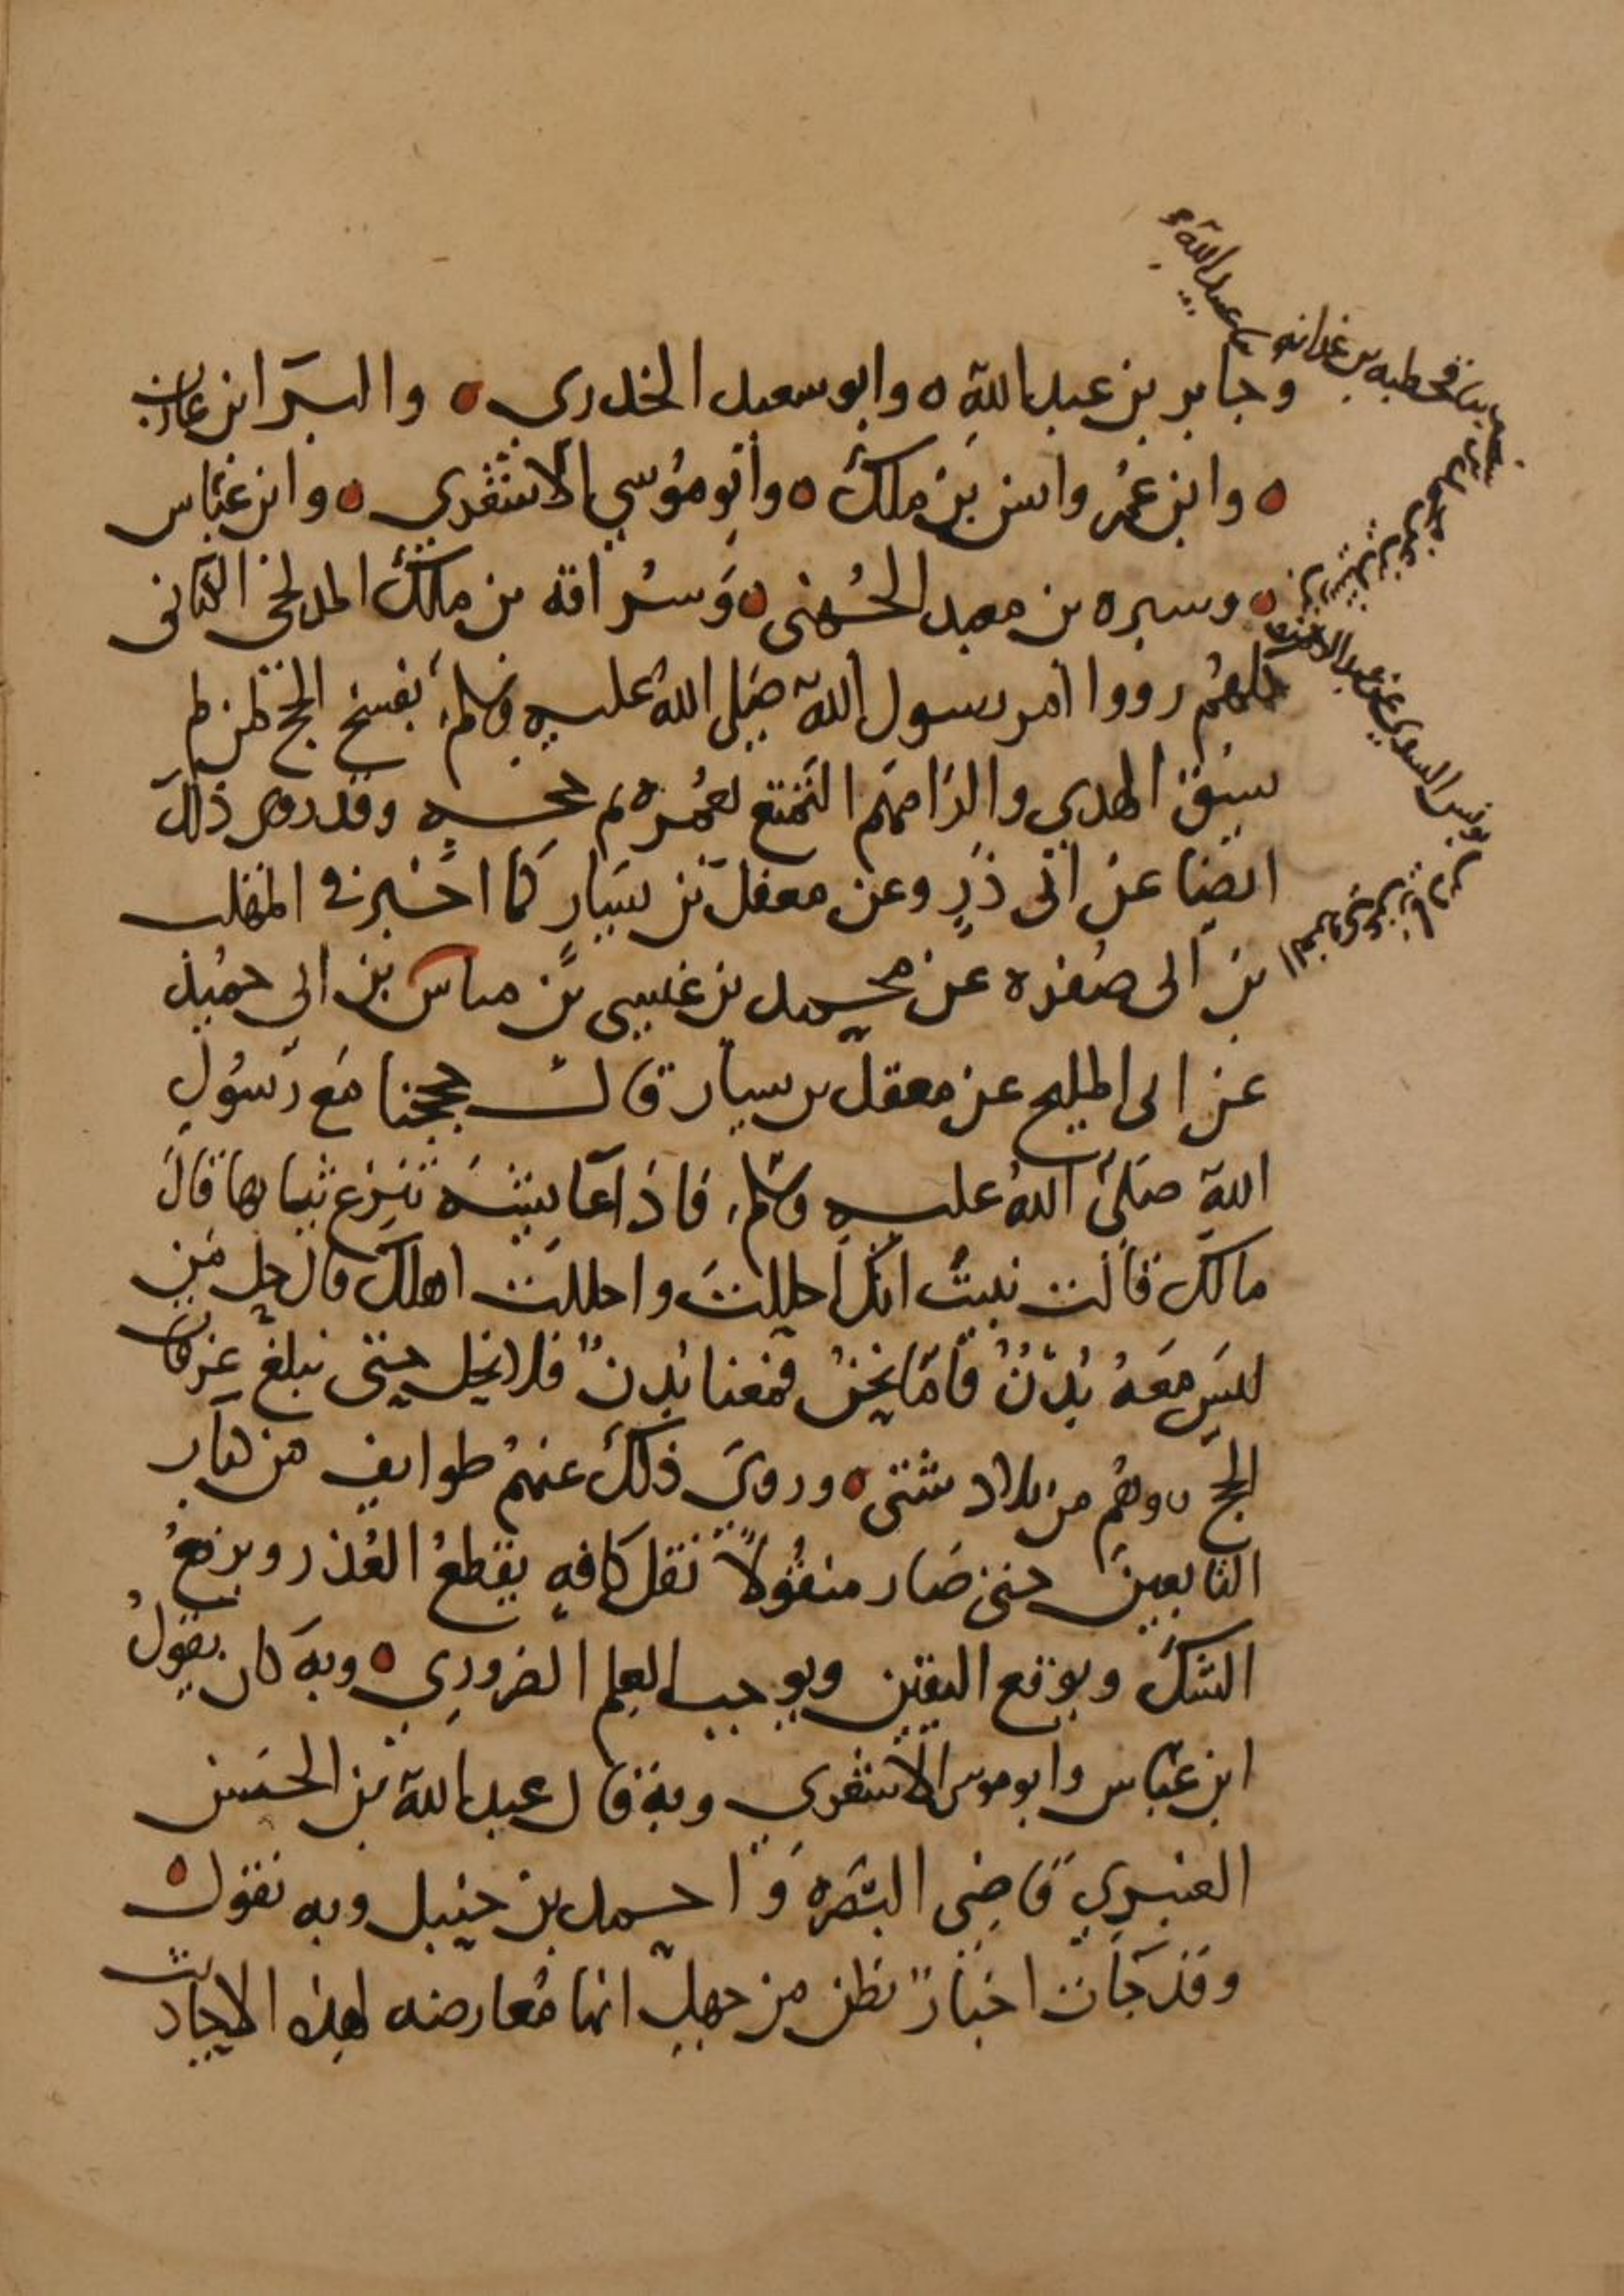 وجابر بن عبد الله ه وابو سعيد الخدري ه والبرا بن عازب
ه وابن عمر وانس بن ملك ه وابو موسي الاشعري ه وابن عباس
ه وسبره بن معبد الجهني ه وسراقه بن مالك المدلجي الكناني
كلهم رووا امر رسول الله صلى الله عليه وسلم بفسخ الحج لمن لم
يسق الهدي والزامهم التمتع بعمره ثم حجه وقد روى ذلك
ايضا عن ابي ذر وعن معقل بن يسار كما اخبرني المهلب
بن ابي صفره عن محمد بن عيسي بن مناس بن ابي حميد
عن ابي المليح عن معقل بن يسار قال حججنا مع رسول
الله صلى الله عليه وسلم فاذا عايشه تنزع ثيابها قال
مالك قالت نبيت انك احللت واحللت اهلك قال حل من
ليس معه بدن فاما نحن فمعنا بدن فلا نحل حتى نبلغ عرفات
الحج وهم من بلاد شتى ه وروى ذلك عنهم طوايف من كبار
التابعين حتى صار منقولا نقل كافه يقطع العذر ويرفع
الشك ويوقع اليقين ويوجب العلم الضروري ه وبه كان يقول
ابن عباس وابو موسى الاشعري وبه قال عبيد الله بن الحسن
العنبري قاضي البصره واحمد بن حنبل وبه نقول ه
وقد جات اخبار يظن من جهل انها معارضه لهذه الاحاديث